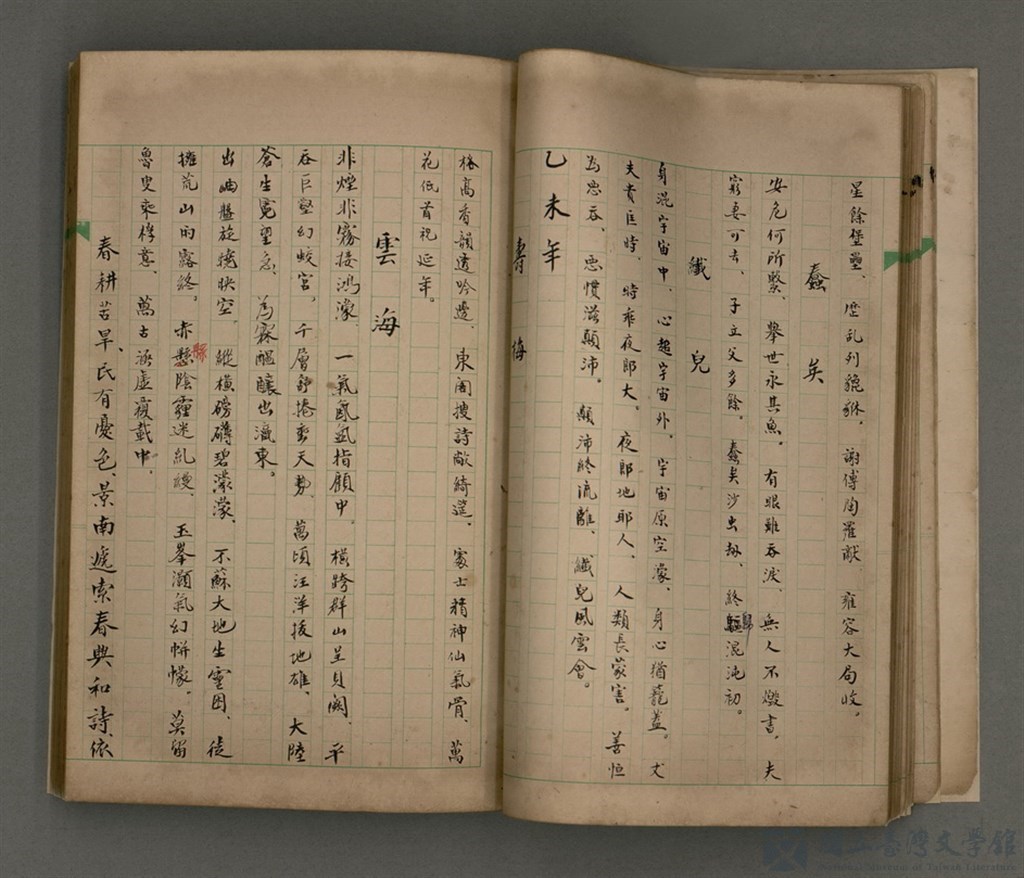 星餘堡壘、歷亂列貔貅。謝傅陶羅猷、雍容大局收。
蠢矣
安危何所繫、舉世永其魚。有眼難吞淚、無人不燬書、夫
窮妻可去、子立父多餘。蠢矣沙虫劫、終歸混沌初。
纖兒
身混宇宙中、心超宇宙外。宇宙原空濛、身心猶蓋。丈
夫貴巨時、時乖夜郎大。夜郎地耶人、人類長蒙害。善恒
為惡吞、惡慣滋顛沛。顛沛終流離、纖兒風雲會。
乙未年
壽梅
格高香韻透吟邊、東閣搜詩敞綺筵、處士精神仙氣骨、萬
花低首祝延年。
雲海
非煙非霧接鴻濛、一氣氤氳指顧中。橫跨群山呈貝闕、平
吞巨壑幻蛟宮、千層舒捲動天勢、萬頃汪洋拔地雄、大陸
蒼生冤望急、為霖醞釀出瀛東。
出岫盤旋撓快空、縱橫磅礡碧濛濛、不蘇大地生靈困、徒
擁荒山雨露終。赤懸縣陰霾迷亂縵、玉峯灝氣幻帡幪。莫留
魯叟乘桴意、萬古涵虛覆載中。
春耕苦旱、民有憂色、景南遞索春興和詩、依
國立臺灣文學館
National Museum of Taiwan Literature